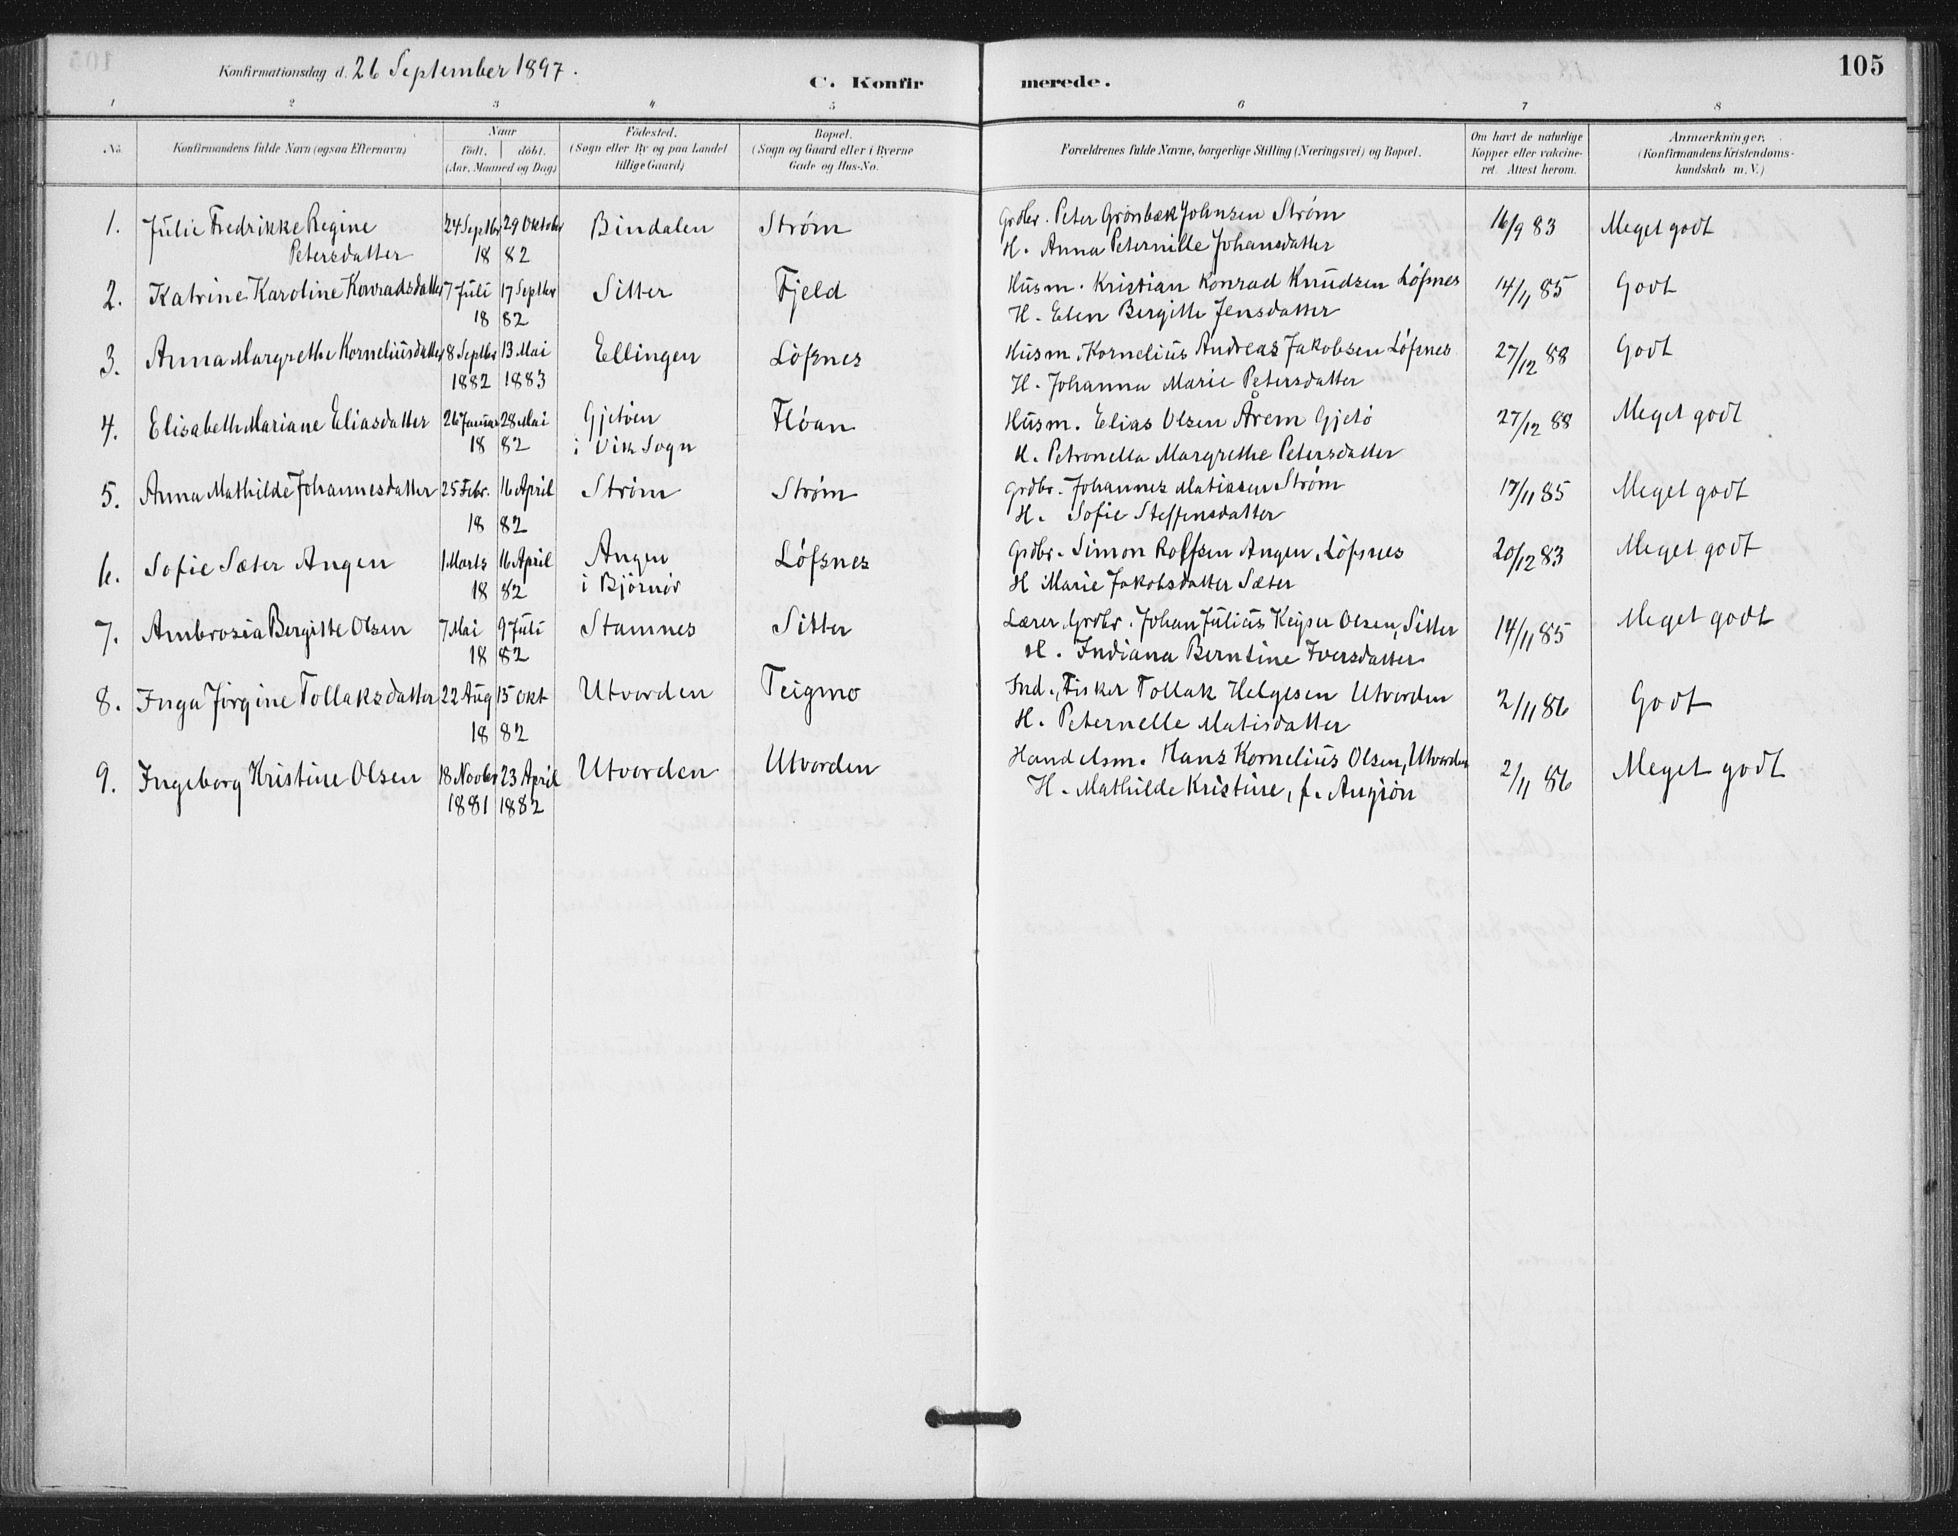 Konfirmationsdag d. 26 September 1897.
C. Konfirmerede.
105
1 2 3 4 5 6 7 8
No. Konfirmandens fulde Navn (ogsaa Efternavn) Naar født, døbt. (Aar, Maaned og Dag) Fødested. (Sogn eller By og paa Landet tillige Gaard) Bopæl. (Sogn og Gaard eller i Byerne Gade og Hus-No. Forældrenes fulde Navne, borgerlige Stilling (Næringsvei) og Bopæl. Om havt de naturlige Kopper eller vakcineret. Attest herom. Anmærkninger. (Konfirmandens Kristendomskundskab m. V.)
1. Julie Fredrikke Regine 24 Septbr 29 Oktober Bindalen Strøm Grdbr. Peter Grønbæk Johnsen Strøm 16/9 83 Meget godt
Petersdatter 18 82 H. Anna Peternille Johansdatter
2. Katrine Karoline Konradsdatter 7 Juli 17 Septbr Sitter Fjeld Husm. Kristian Konrad Knudsen Løfsnes 14/11 85 Godt
18 82 H. Elen Bergitte Jensdatter
3. Anna Margrethe Korneliusdatter 8 Septbr 13 Mai Ellingen Løfsnes Husm. Kornelius Andreas Jakobsen Løfsnes 27/12 88 Godt
1882 1883 H. Johanna Marie Petersdatter
4. Elisabeth Mariane Eliasdatter 26 Januar 28 Mai Gjetøen Fløan Husm. Elias Olsen Årem Gjetø 27/12 88 Meget godt
18 82 i Vik Sogn H. Petronella Margrethe Petersdatter
5. Anna Mathilde Johannesdatter 25 Febr. 16 April Strøm Strøm Grdbr. Johannes Matiasen Strøm 17/11 85 Meget godt
18 82 H. Sofie Steffensdatter
6. Sofie Sæter Angen 1 Marts 16 April Angen Løfsnes Grdbr. Simon Rolfsen Angen, Løfsnes 20/12 83 Meget godt
18 82 i Bjørnør H Marie Jakobsdatter Sæter
7. Ambrosia Bergitte Olsen 7 Mai 9 Juli Stamnes Sitter Lærer, Grdbr. Johan Julius Keyser Olsen, Sitter 14/11 85 Meget godt
18 82 H. Indiana Berntine Iversdatter
8. Inga Jørgine Tollaksdatter 22 Aug 15 Okt Utvorden Teigmo Ind., Fisker Tollak Helgesen Utvorden 2/11 86 Godt
18 82 H. Peternelle Matisdatter
9. Ingeborg Kristine Olsen 18 Novbr 23 April Utvorden Utvorden Handelsm. Hans Kornelius Olsen, Utvorden 2/11 86 Meget godt
1881 1882 H. Mathilde Kristine, f.